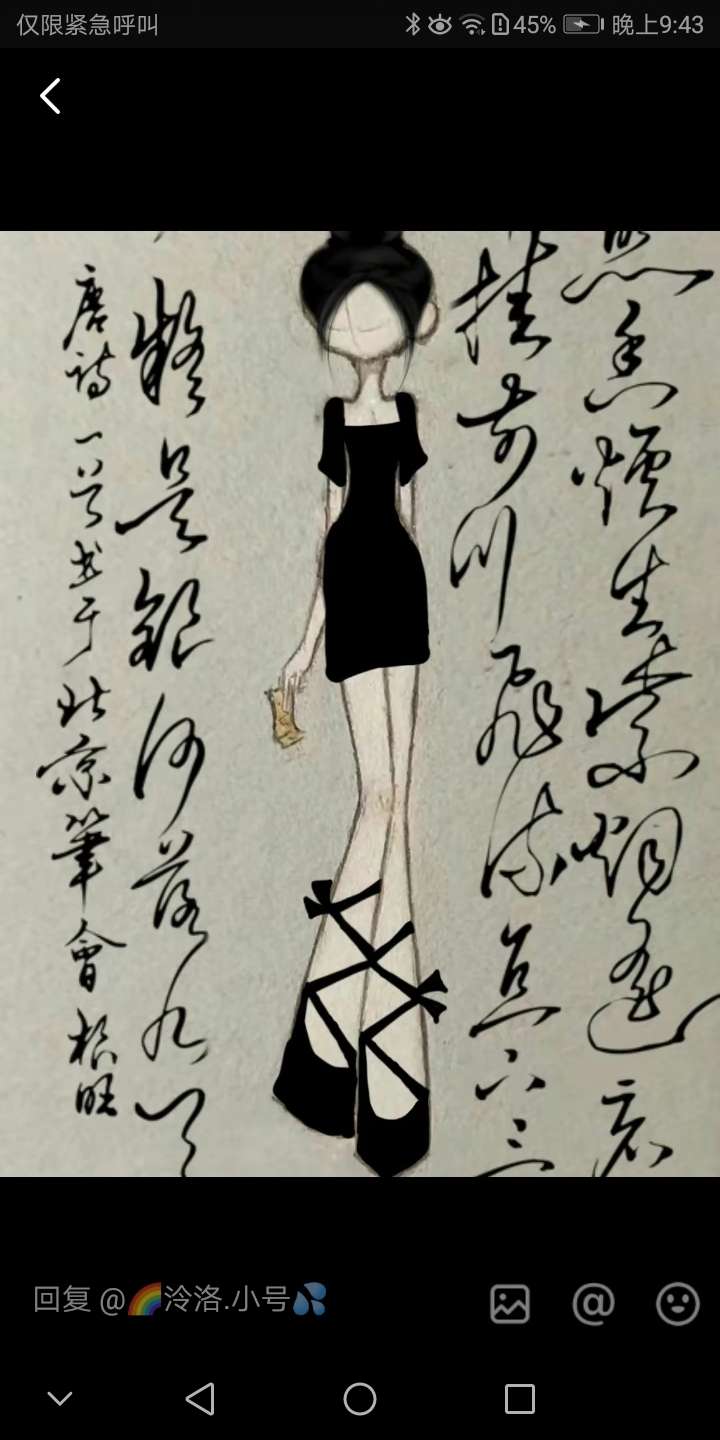 仅限紧急呼叫
45% 晚上9:43
照香爐生紫烟遥看
挂前川飛流直下三
疑是銀河落九天
唐詩一首书于北京筆會
回复 @🌈泠洛.小号💦